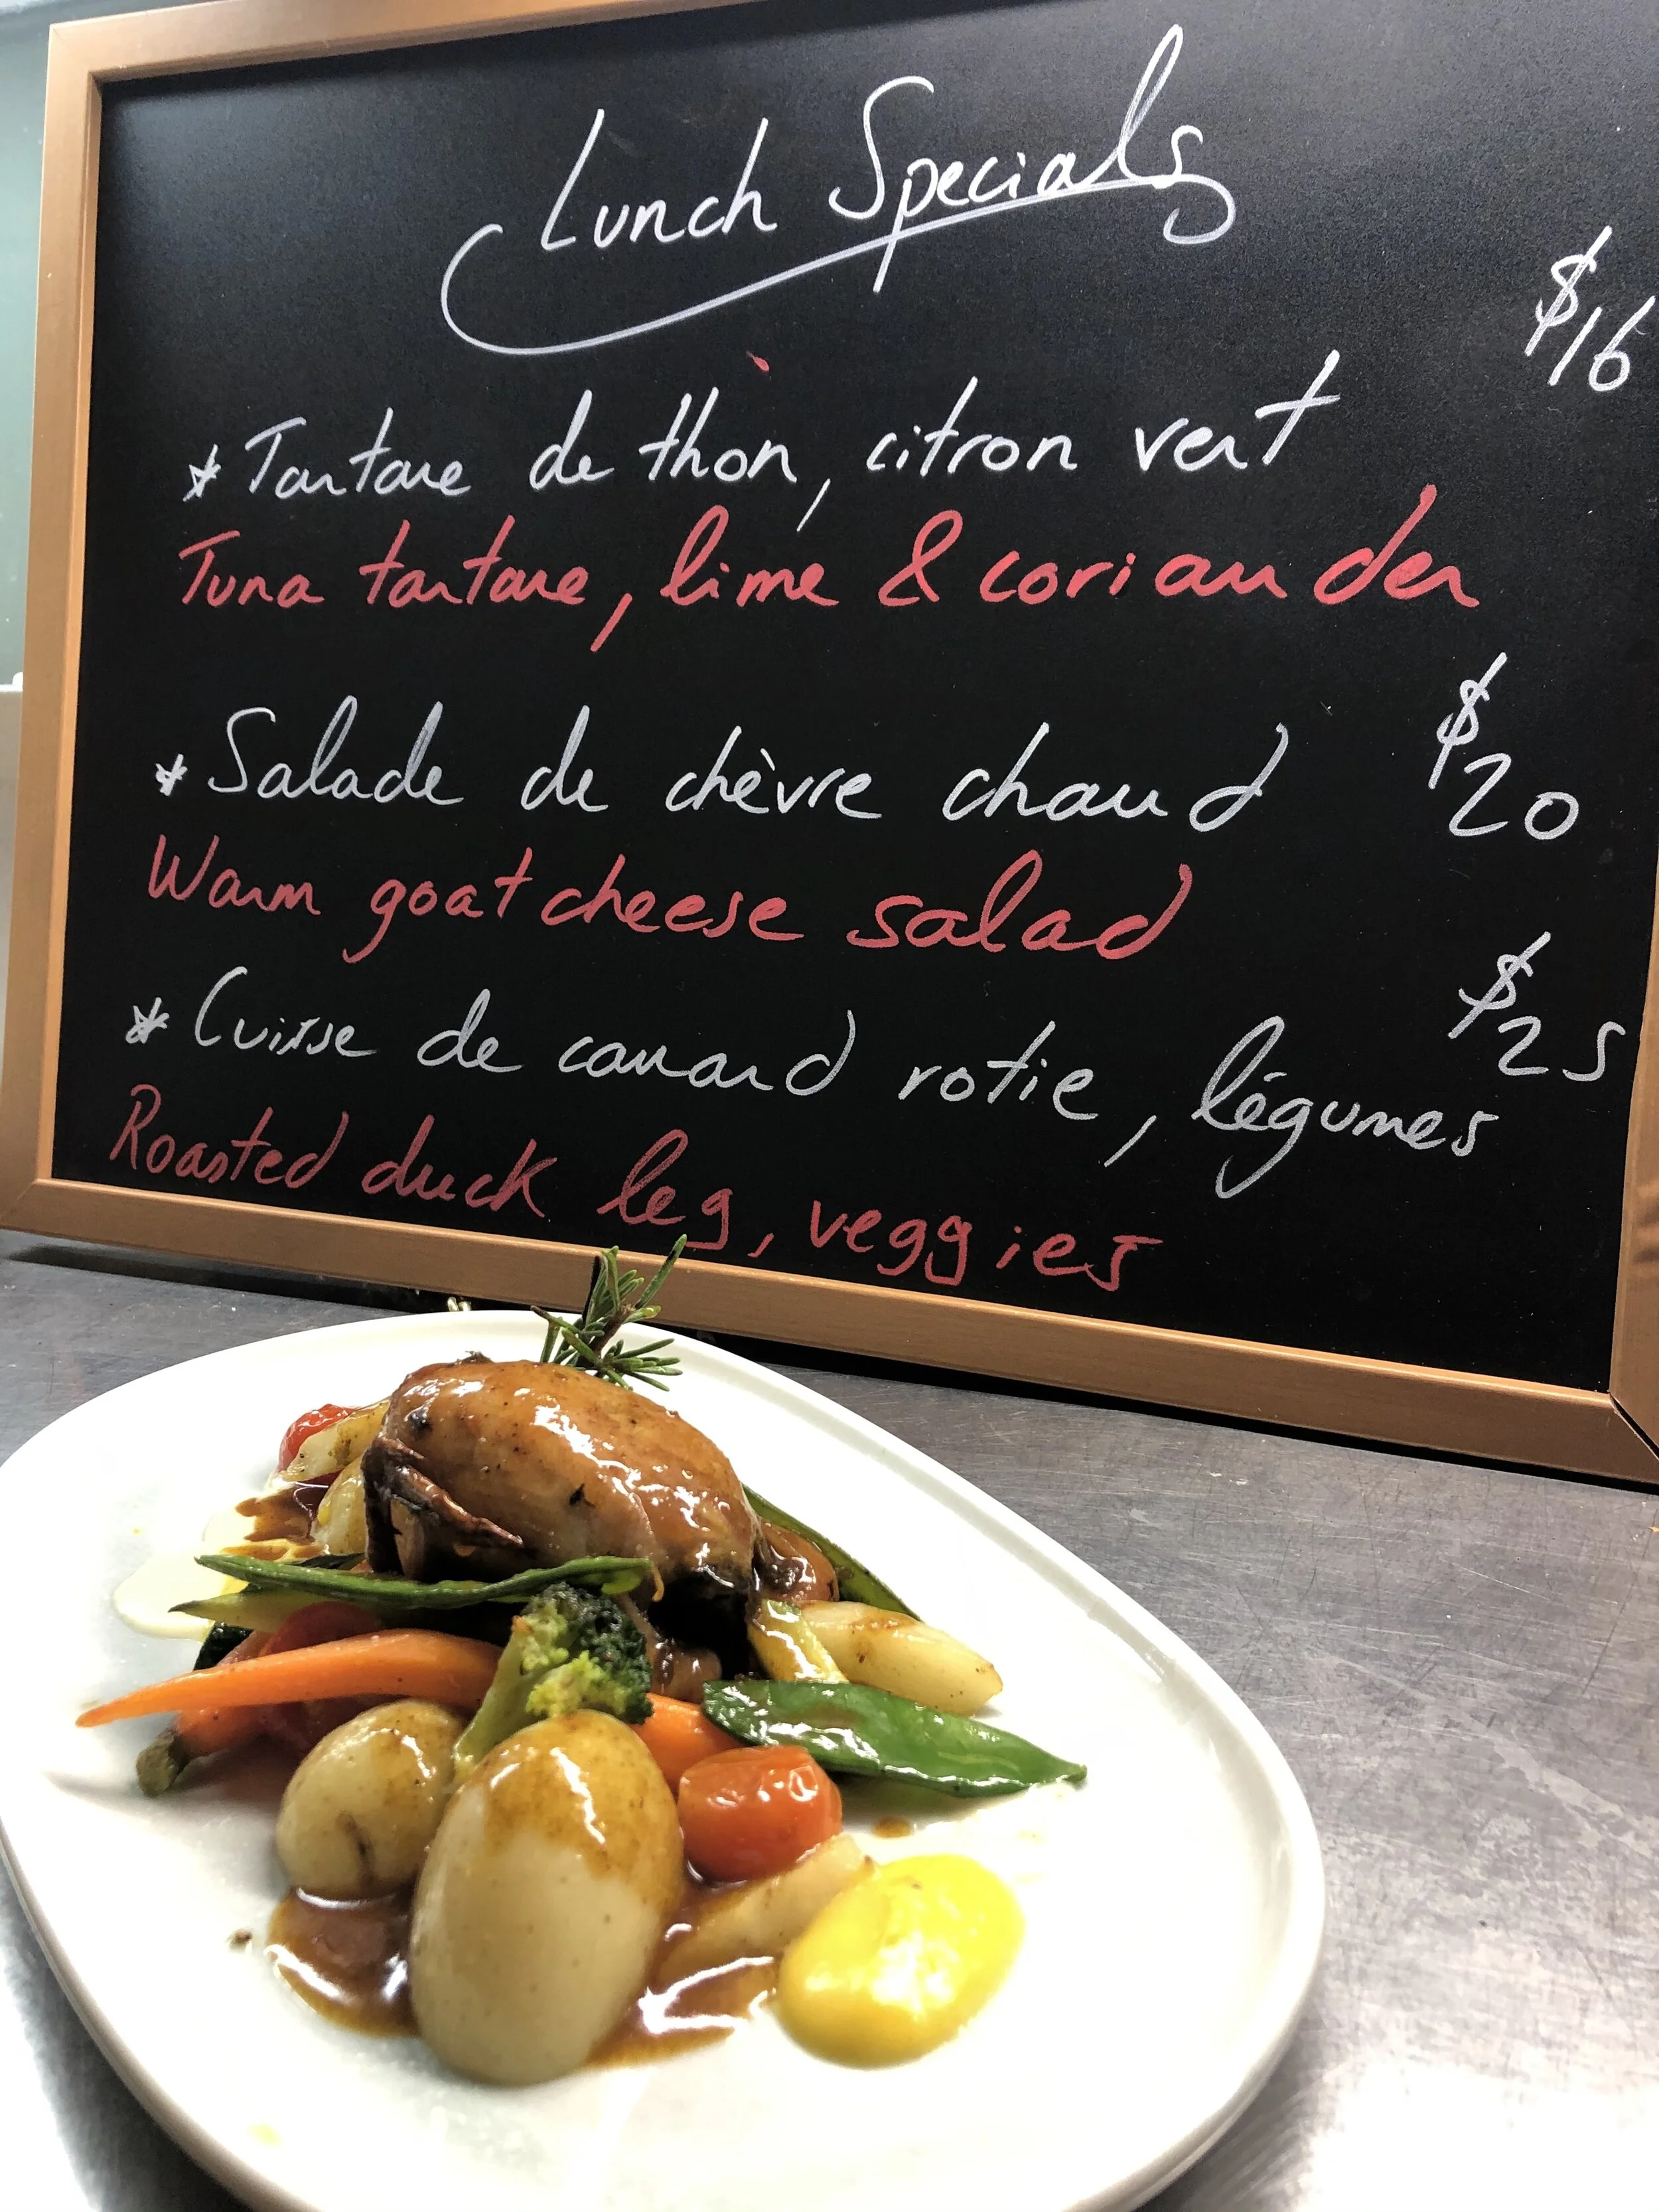 Lunch Specials
$16
* Tartare de thon, citron vert
Tuna tartare, lime & coriander
$20
* Salade de chèvre chaud
Warm goat cheese salad
$25
* Cuisse de canard rotie, légumes
Roasted duck leg, veggies